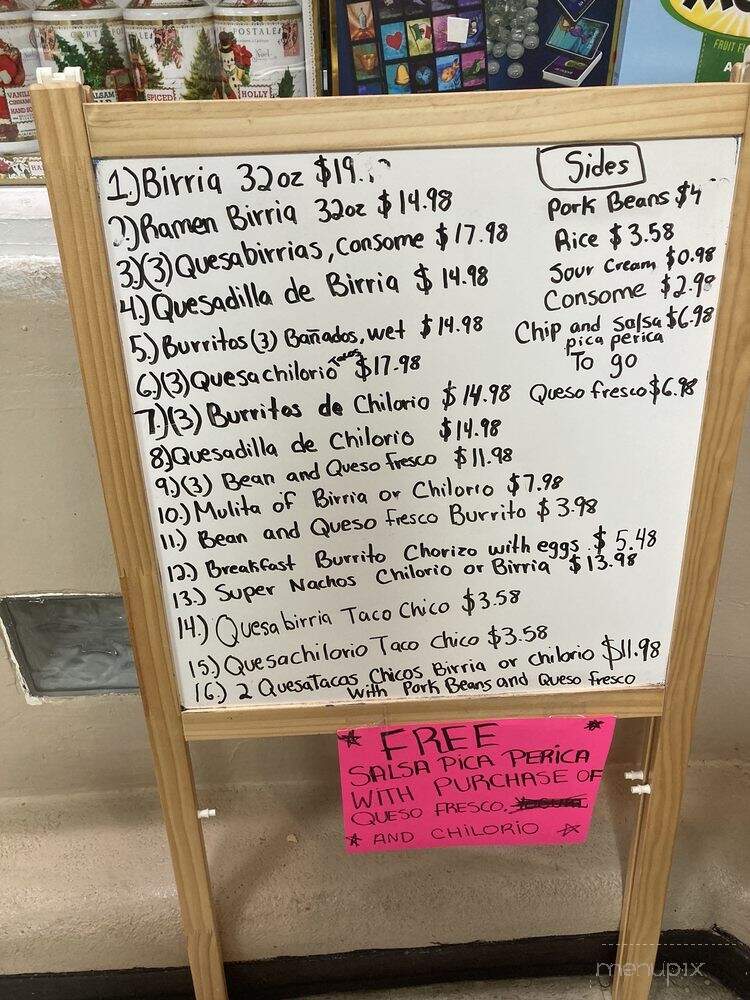 1.) Birria 32oz $19.
2.) Ramen Birria 32oz $14.98
3.) (3) Quesabirrias, consome $17.98
4.) Quesadilla de Birria $14.98
5.) Burritos (3) Bañados, wet $14.98
6.) (3) Quesachilorio Tacos $17.98
7.) (3) Burritos de Chilorio $14.98
8) Quesadilla de Chilorio $14.98
9.) (3) Bean and Queso fresco $11.98
10.) Mulita of Birria or Chilorio $7.98
11.) Bean and Queso fresco Burrito $3.98
12.) Breakfast Burrito Chorizo with eggs $5.48
13.) Super Nachos Chilorio or Birria $13.98
14.) Quesabirria Taco Chico $3.58
15.) Quesachilorio Taco chico $3.58
16.) 2 QuesaTacos Chicos Birria or chilorio $11.98
with Pork Beans and Queso fresco
Sides
Pork Beans $4
Rice $3.58
Sour Cream $0.98
Consome $2.98
Chip and Salsa $6.98
pica perica
To go
Queso fresco $6.98
FREE
SALSA PICA PERICA
WITH PURCHASE OF
QUESO FRESCO,
AND CHILORIO
SPICED
HOLLY
menupix